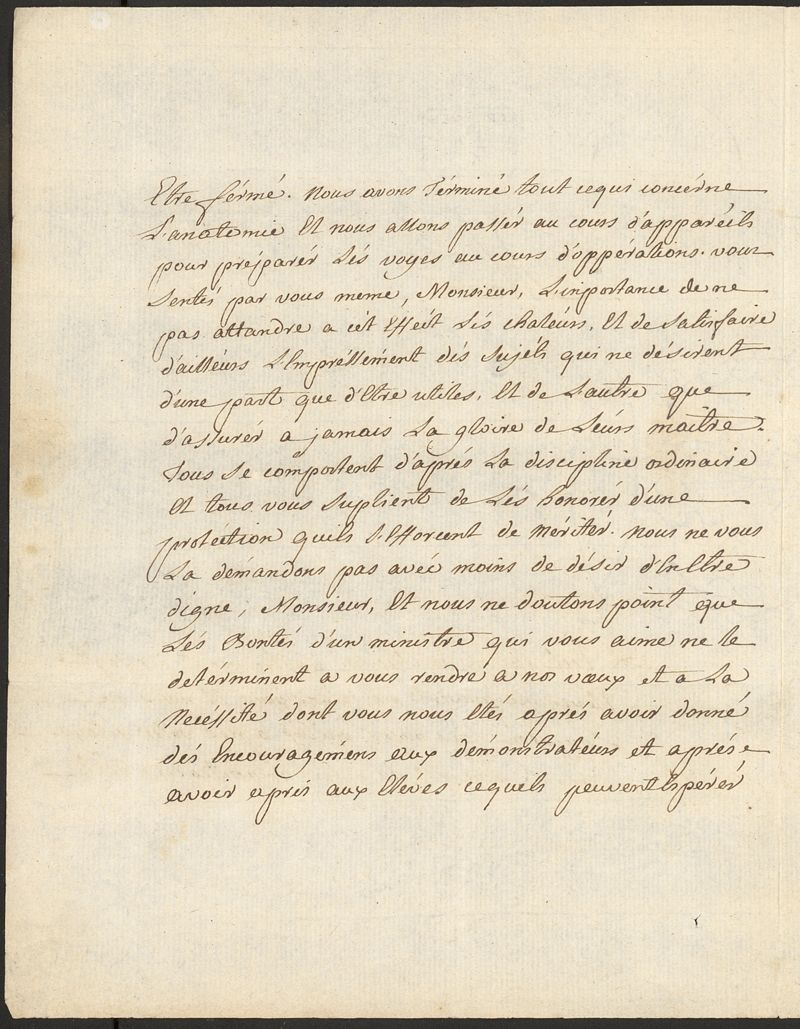 Etre férmé. Nous avons Términé tout cequi concérne
L'anatomie Et nous allons passér au cours d'apparéils
pour préparér Lés voyes au cours d'oppérations. vous
Sentés par vous meme, Monsieur, L'importance de ne
pas attandre a cét Efféit Lés chaleurs, Et de Satisfaire
d'ailléurs L'Empréssement dés Sujéts qui ne désirent
d'une part que d'Etre utiles, Et de L'autre que
d'assurér a jamais La gloire de Léurs maitre.
Tous Se comportent d'aprés La discipline ordinaire
Et tous vous Suplient de Lés honorér d'une
protéction quils S'Efforcent de méritér. Nous ne vous
La démandons pas avéc moins de désir d'En Etre
digne, Monsieur, Et nous ne doutons point que
Lés Bontés d'un ministre qui vous aime ne le
detérminent a vous rendre a nos vœux et a La
Nécéssité dont vous nous Etés aprés avoir donné
dés Encouragémens aux démonstratéurs et aprés
avoir apris aux Eléves cequels peuvent Espérér